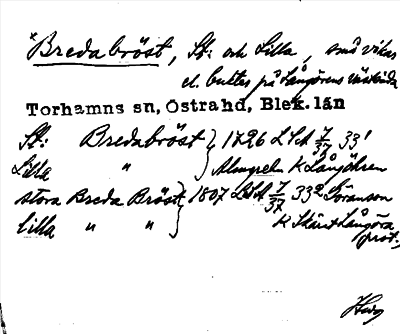 *Bredabröst, St: och Lilla, små vikar
el. bukter på Långörens västsida
Torhamns sn, Östrahd, Blek. län
St: Bredabröst } 1796 LSA I/37 33¹
Lilla " } Almgren K Långöhren
stora Breda Bröst } 1807 LSA I/37 33² Göranson
lilla " " } K Skäret Långöra
prot.